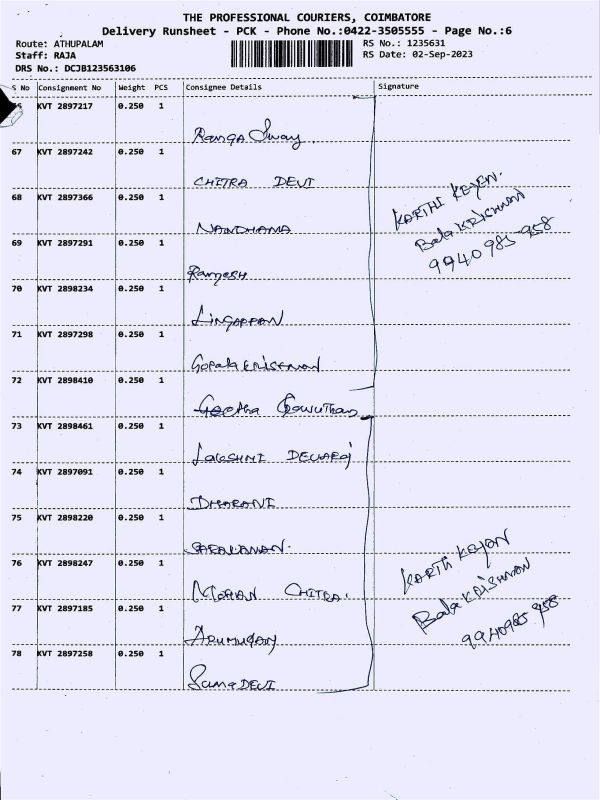 THE PROFESSIONAL COURIERS, COIMBATORE
Delivery Runsheet - PCK - Phone No.:0422-3505555 - Page No.:6
Route: ATHUPALAM RS No.: 1235631
Staff: RAJA RS Date: 02-Sep-2023
DRS No.: DCJB123563106
S No Consignment No Weight PCS Consignee Details Signature
KVT 2897217 0.250 1
Ranga Sway
67 KVT 2897242 0.250 1
CHITRA DEVI
68 KVT 2897366 0.250 1
NANDHANA
KARTHI KEYEN.
Bala KRISHNAN
9940985958
69 KVT 2897291 0.250 1
Ramesh
70 KVT 2898234 0.250 1
LINGAPPAN
71 KVT 2897298 0.250 1
Gopala KRISHNAN
72 KVT 2898410 0.250 1
Geetha Gowuthan
73 KVT 2898461 0.250 1
LAKSHMI DEVARaj
74 KVT 2897091 0.250 1
DHARANI
75 KVT 2898220 0.250 1
SARAVANAN.
76 KVT 2898247 0.250 1
MOHAN CHITRA.
KARTHI KEYAN
Bala KRISHNAN
9940985958
77 KVT 2897185 0.250 1
ARUMUGAM
78 KVT 2897258 0.250 1
Suma DEVI